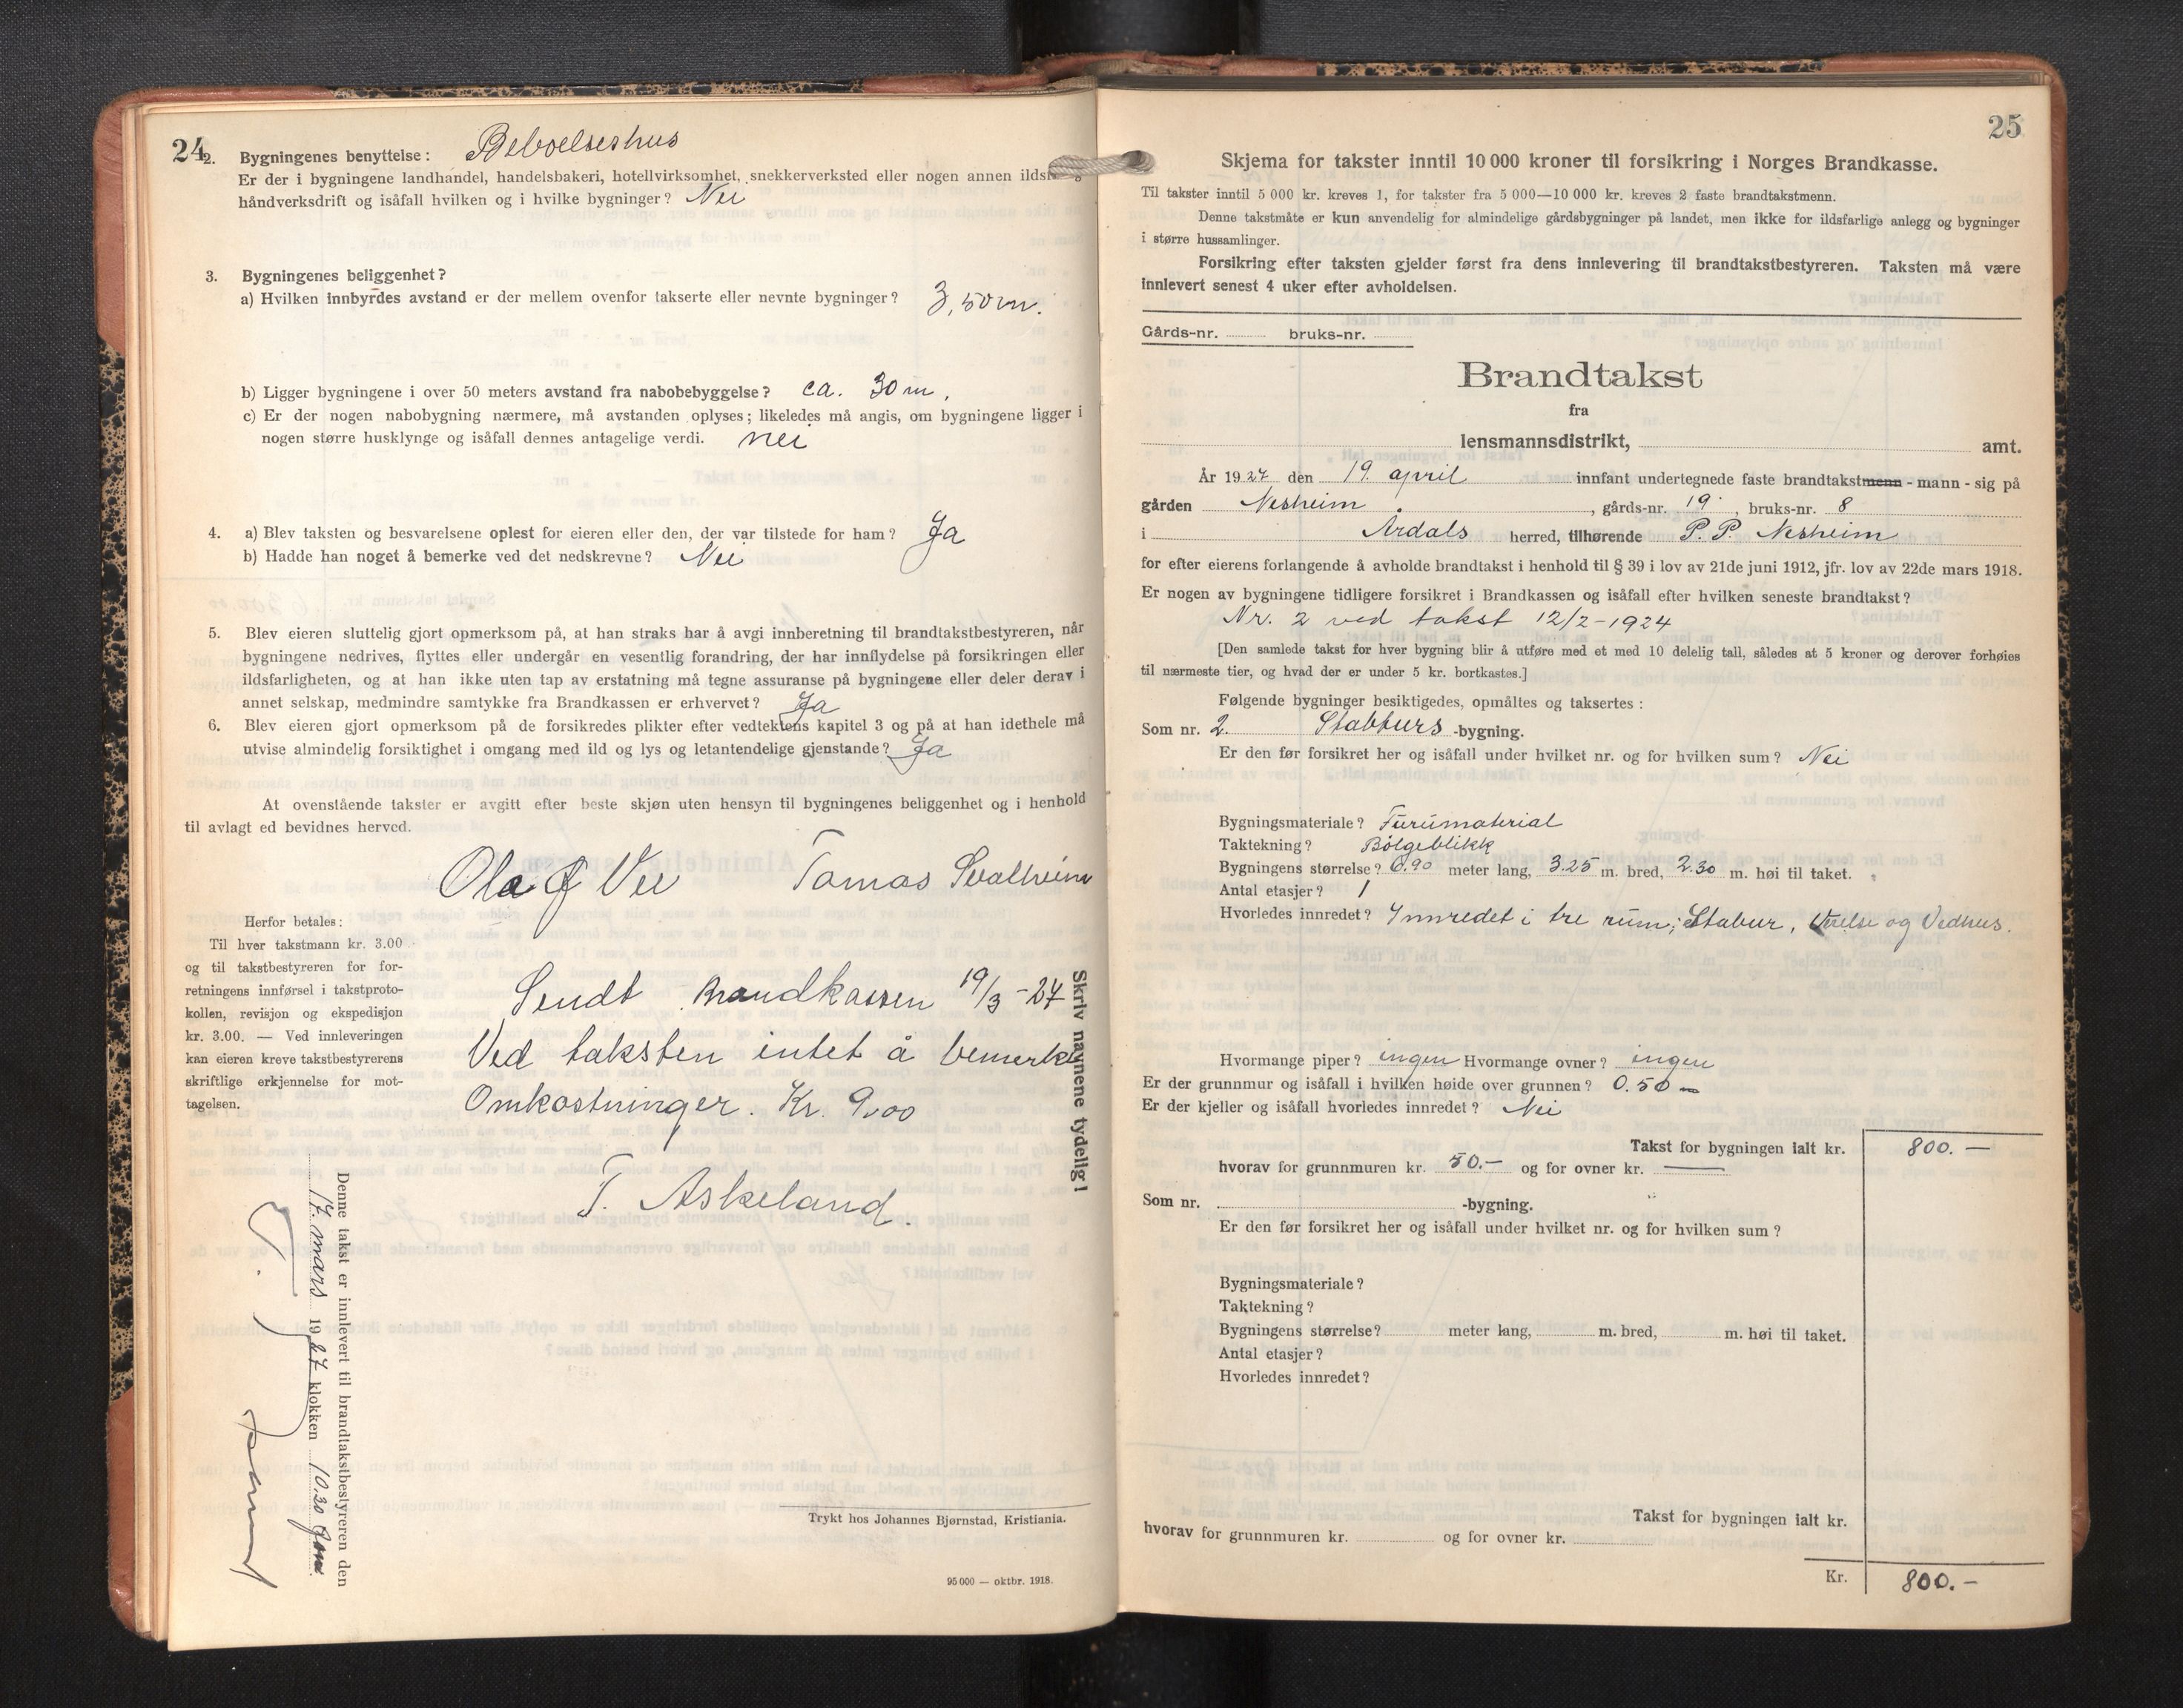 24
2. Bygningenes benyttelse: Beboelseshus
Er der i bygningene landhandel, handelsbakeri, hotellvirksomhet, snekkerverksted eller nogen annen
håndverksdrift og isåfall hvilken og i hvilke bygninger? Nei
3. Bygningenes beliggenhet?
a) Hvilken innbyrdes avstand er der mellem ovenfor takserte eller nevnte bygninger? 3,50 m.
b) Ligger bygningene i over 50 meters avstand fra nabobebyggelse? ca. 30 m,
c) Er der nogen nabobygning nærmere, må avstanden oplyses; likeledes må angis, om bygningene ligger i
nogen større husklynge og isåfall dennes antagelige verdi. nei
4. a) Blev taksten og besvarelsene oplest for eieren eller den, der var tilstede for ham? Ja
b) Hadde han noget å bemerke ved det nedskrevne? Nei
5. Blev eieren sluttelig gjort opmerksom på, at han straks har å avgi innberetning til brandtakstbestyreren, når
bygningene nedrives, flyttes eller undergår en vesentlig forandring, der har innflydelse på forsikringen eller
ildsfarligheten, og at han ikke uten tap av erstatning må tegne assuranse på bygningene eller deler derav i
annet selskap, medmindre samtykke fra Brandkassen er erhvervet? Ja
6. Blev eieren gjort opmerksom på de forsikredes plikter efter vedtektens kapitel 3 og på at han idethele må
utvise almindelig forsiktighet i omgang med ild og lys og letantendelige gjenstande? Ja
At ovenstående takster er avgitt efter beste skjøn uten hensyn til bygningenes beliggenhet og i henhold
til avlagt ed bevidnes herved.
Ola J Vee Tomas Svalheim
Herfor betales:
Til hver takstmann kr. 3.00
og til takstbestyreren for for-
retningens innførsel i takstproto-
kollen, revisjon og ekspedisjon
kr. 3.00. — Ved innleveringen
kan eieren kreve takstbestyrerens
skriftlige erkjennelse for mot-
tagelsen.
Sendt Brandkassen 19/3-27
Ved taksten intet å bemerke
Omkostninger. Kr. 9.00
T. Askeland.
Skriv navnene tydelig!
Denne takst er innlevert til brandtakstbestyreren den
17. mars 1927 klokken 10.30 fm.
Trykt hos Johannes Bjørnstad, Kristiania.
95 000 — oktbr. 1918.
25
Skjema for takster inntil 10 000 kroner til forsikring i Norges Brandkasse.
Til takster inntil 5 000 kr. kreves 1, for takster fra 5 000—10 000 kr. kreves 2 faste brandtakstmenn.
Denne takstmåte er kun anvendelig for almindelige gårdsbygninger på landet, men ikke for ildsfarlige anlegg og bygninger
i større hussamlinger.
Forsikring efter taksten gjelder først fra dens innlevering til brandtakstbestyreren. Taksten må være
innlevert senest 4 uker efter avholdelsen.
Gårds-nr. bruks-nr.
Brandtakst
fra
lensmannsdistrikt, amt.
År 1927 den 19. april innfant undertegnede faste brandtakstmenn - mann - sig på
gården Nesheim, gårds-nr. 19, bruks-nr. 8
i Årdals herred, tilhørende P. P. Nesheim
for efter eierens forlangende å avholde brandtakst i henhold til § 39 i lov av 21de juni 1912, jfr. lov av 22de mars 1918.
Er nogen av bygningene tidligere forsikret i Brandkassen og isåfall efter hvilken seneste brandtakst?
Nr. 2 ved takst 12/2-1924
[Den samlede takst for hver bygning blir å utføre med et med 10 delelig tall, således at 5 kroner og derover forhøies
til nærmeste tier, og hvad der er under 5 kr. bortkastes.]
Følgende bygninger besiktigedes, opmåltes og taksertes:
Som nr. 2. Stabburs -bygning.
Er den før forsikret her og isåfall under hvilket nr. og for hvilken sum? Nei
Bygningsmateriale? Furumaterial
Taktekning? Bölgeblikk
Bygningens størrelse? 6.90 meter lang, 3.25 m. bred, 2.30 m. høi til taket.
Antal etasjer? 1
Hvorledes innredet? Innredet i tre rum; Stabur, og Vedhus.
Hvormange piper? ingen Hvormange ovner? ingen
Er der grunnmur og isåfall i hvilken høide over grunnen? 0.50 m
Er der kjeller og isåfall hvorledes innredet? Nei
Takst for bygningen ialt kr. 800.—
hvorav for grunnmuren kr. 50.- og for ovner kr. —
Som nr. -bygning.
Er den før forsikret her og isåfall under hvilket nr. og for hvilken sum?
Bygningsmateriale?
Taktekning?
Bygningens størrelse? meter lang, m. bred, m. høi til taket.
Antal etasjer?
Hvorledes innredet?
Takst for bygningen ialt kr.
hvorav for grunnmuren kr. og for ovner kr.
Kr. 800.-